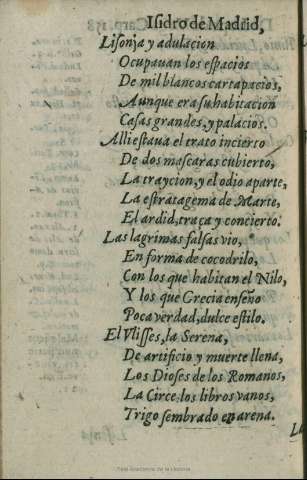 Isidro de Madrid,
Lisonja y adulacion
Ocupauan los espacios
De mil blancos cartapacios,
Aunque era su habitacion
Casas grandes, y palacios.
Alli estaua el trato incierto
De dos mascaras cubierto,
La traycion, y el odio aparte,
La estratagema de Marte,
El ardid, traça y concierto.
Las lagrimas falsas vio,
En forma de cocodrilo,
Con los que habitan el Nilo,
Y los que Grecia enseño
Poca verdad, dulce estilo.
El Vlisses, la Serena,
De artificio y muerte llena,
Los Dioses de los Romanos,
La Circe, los libros vanos,
Trigo sembrado en arena.
La
Real Academia de la Historia